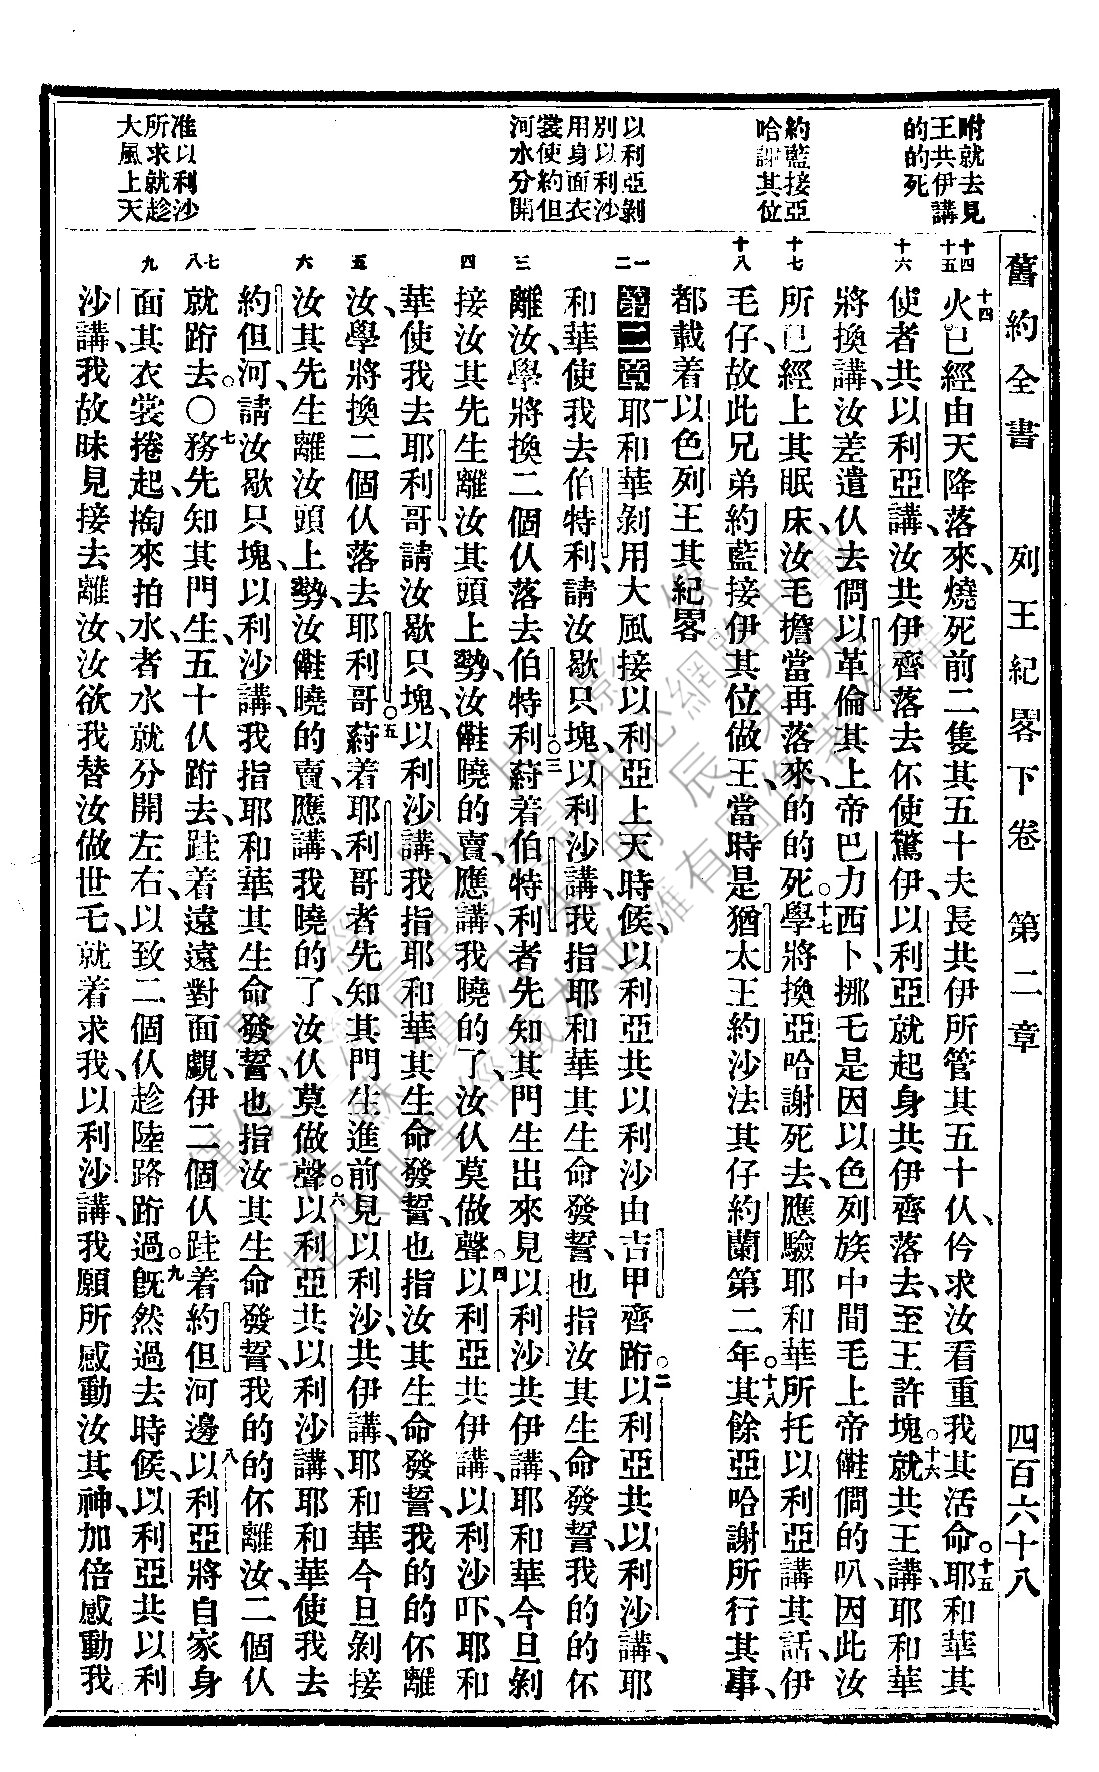 舊約全書 列王紀畧下卷 第二章 四百六十八
咐就去見
王共伊講
的的死
約藍接亞
哈謝其位
以利亞剝
別以利沙
用身面衣
裳使約但
河水分開
准以利沙
所求就趁
大風上天
十四 十五 十六 十七 十八 一 二 三 四 五 六 七 八 九
十四火已經由天降落來、燒死前二隻其五十夫長共伊所管其五十伙、伶求汝看重我其活命。十五耶和華其
使者共以利亞講、汝共伊齊落去伓使驚伊、以利亞就起身共伊齊落去、至王許塊。十六就共王講、耶和華
將換講、汝差遣伙去問以革倫其上帝巴力西卜、挪乇是因以色列族中間毛上帝䧹問的叭、因此汝
所已經上其眠床、汝毛擔當再落來、的的死。十七學將換亞哈謝死去、應驗耶和華所托以利亞講其話、伊
毛仔、故此兄弟約藍接伊其位做王、當時是猶太王約沙法其仔約蘭第二年。十八其餘亞哈謝所行其事、
都載着以色列王其紀畧
第二章 一耶和華剝用大風接以利亞上天時候、以利亞共以利沙由吉甲齊跨。二以利亞共以利沙講、耶
和華使我去伯特利、請汝歇只塊、以利沙講、我指耶和華其生命發誓、也指汝其生命發誓、我的的伓
離汝、學將換二個伙落去伯特利。三蔚着伯特利者先知其門生出來見以利沙共伊講、耶和華今旦剝
接汝其先生離汝其頭上、勢汝䧹曉的賣、應講、我曉的了、汝伙莫做聲。四以利亞共伊講、以利沙吓、耶和
華使我去耶利哥、請汝歇只塊、以利沙講、我指耶和華其生命發誓、也指汝其生命發誓、我的的伓離
汝、學將換二個伙落去耶利哥。五蔚着耶利哥者先知其門生進前見以利沙、共伊講、耶和華今旦剝接
汝其先生離汝頭上、勢汝䧹曉的賣、應講、我曉的了、汝伙莫做聲。六以利亞共以利沙講、耶和華使我去
約但河、請汝歇只塊、以利沙講、我指耶和華其生命發誓、也指汝其生命發誓、我的的伓離汝、二個伙
就跨去。〇七務先知其門生、五十伙跨去、跬着遠遠對面覷、伊二個伙跬着約但河邊。八以利亞將自家身
面其衣裳捲起、掏來拍水、者水就分開左右、以致二個伙趁陸路跨過。九旣然過去時候、以利亞共以利
沙講、我故昧見接去離汝、汝欲我替汝做世乇、就着求我、以利沙講、我願所感動汝其神、加倍感動我